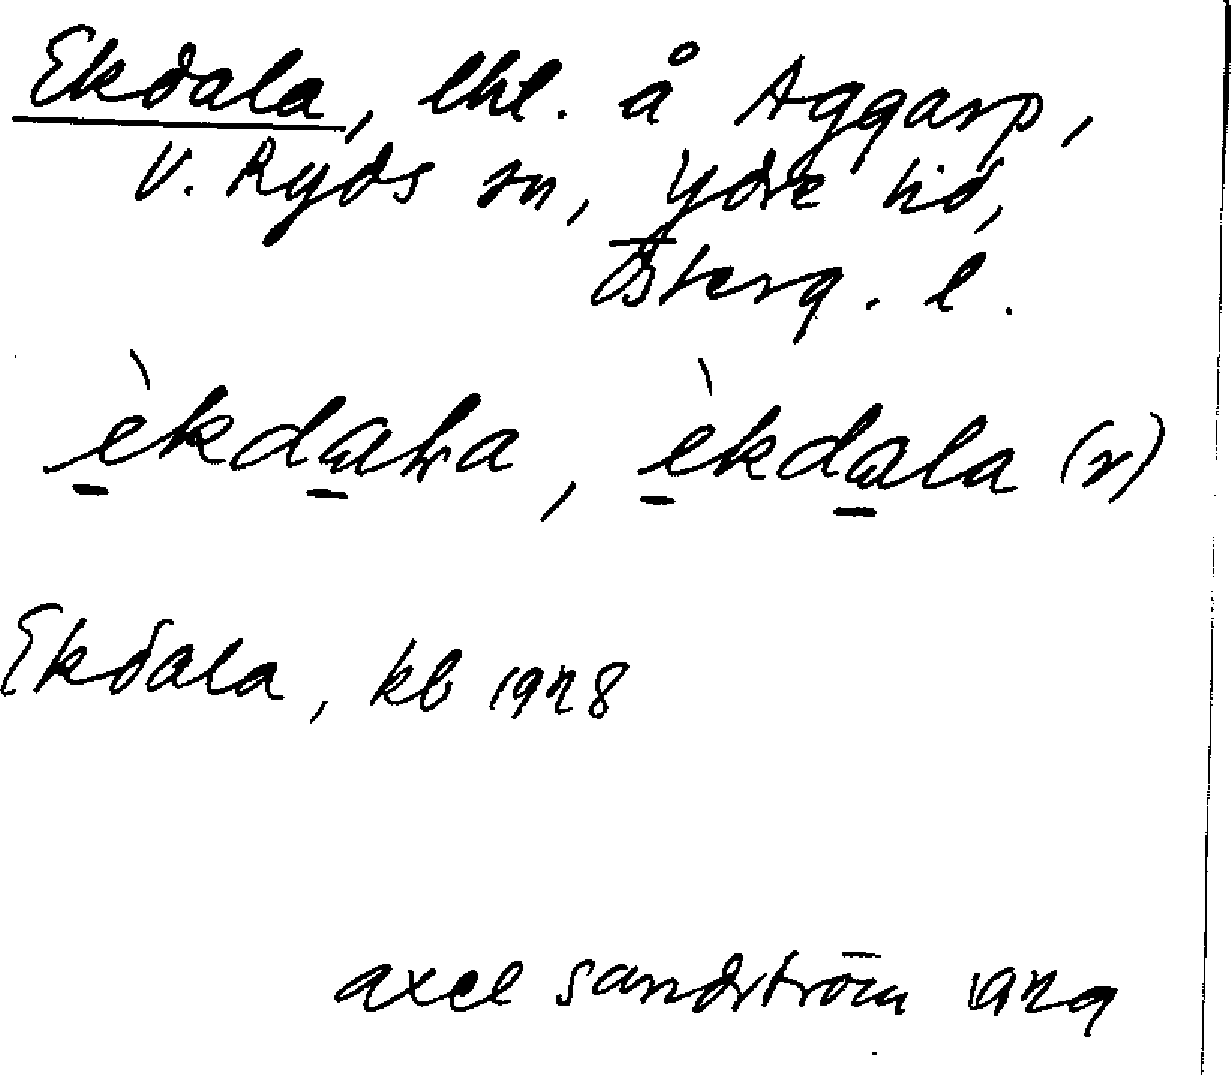 Ekdala, lht. å Aggarp,
V. Ryds sn, Ydre hd,
Österg. l.
èkdaɫa, èkdala (r)
Ekdala, kb 1928
axel sandström 1929